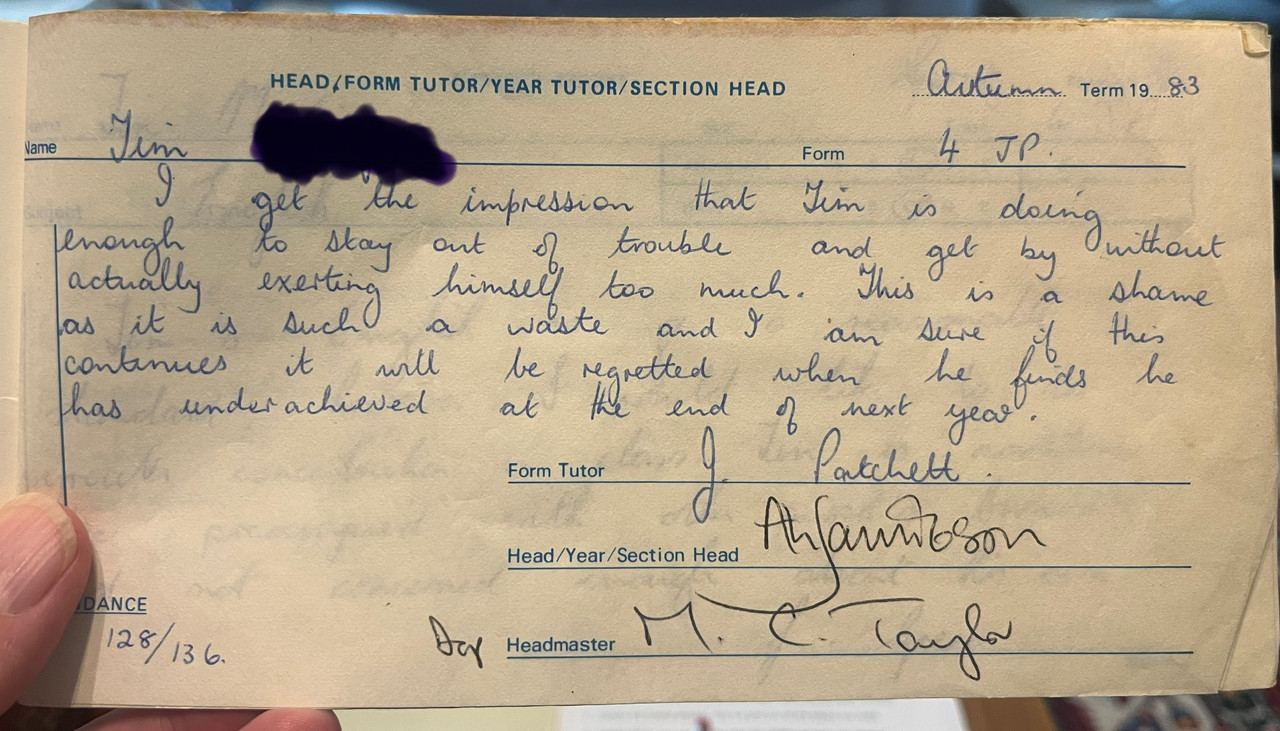 HEAD/FORM TUTOR/YEAR TUTOR/SECTION HEAD Autumn Term 19 83
Name Tim Form 4 JP.
I get the impression that Tim is doing
enough to stay out of trouble and get by without
actually exerting himself too much. This is a shame
as it is such a waste and I am sure if this
continues it will be regretted when he finds he
has underachieved at the end of next year.
Form Tutor J. Patchett.
Head/Year/Section Head
DANCE
128/136.
Headmaster M. C. Taylor